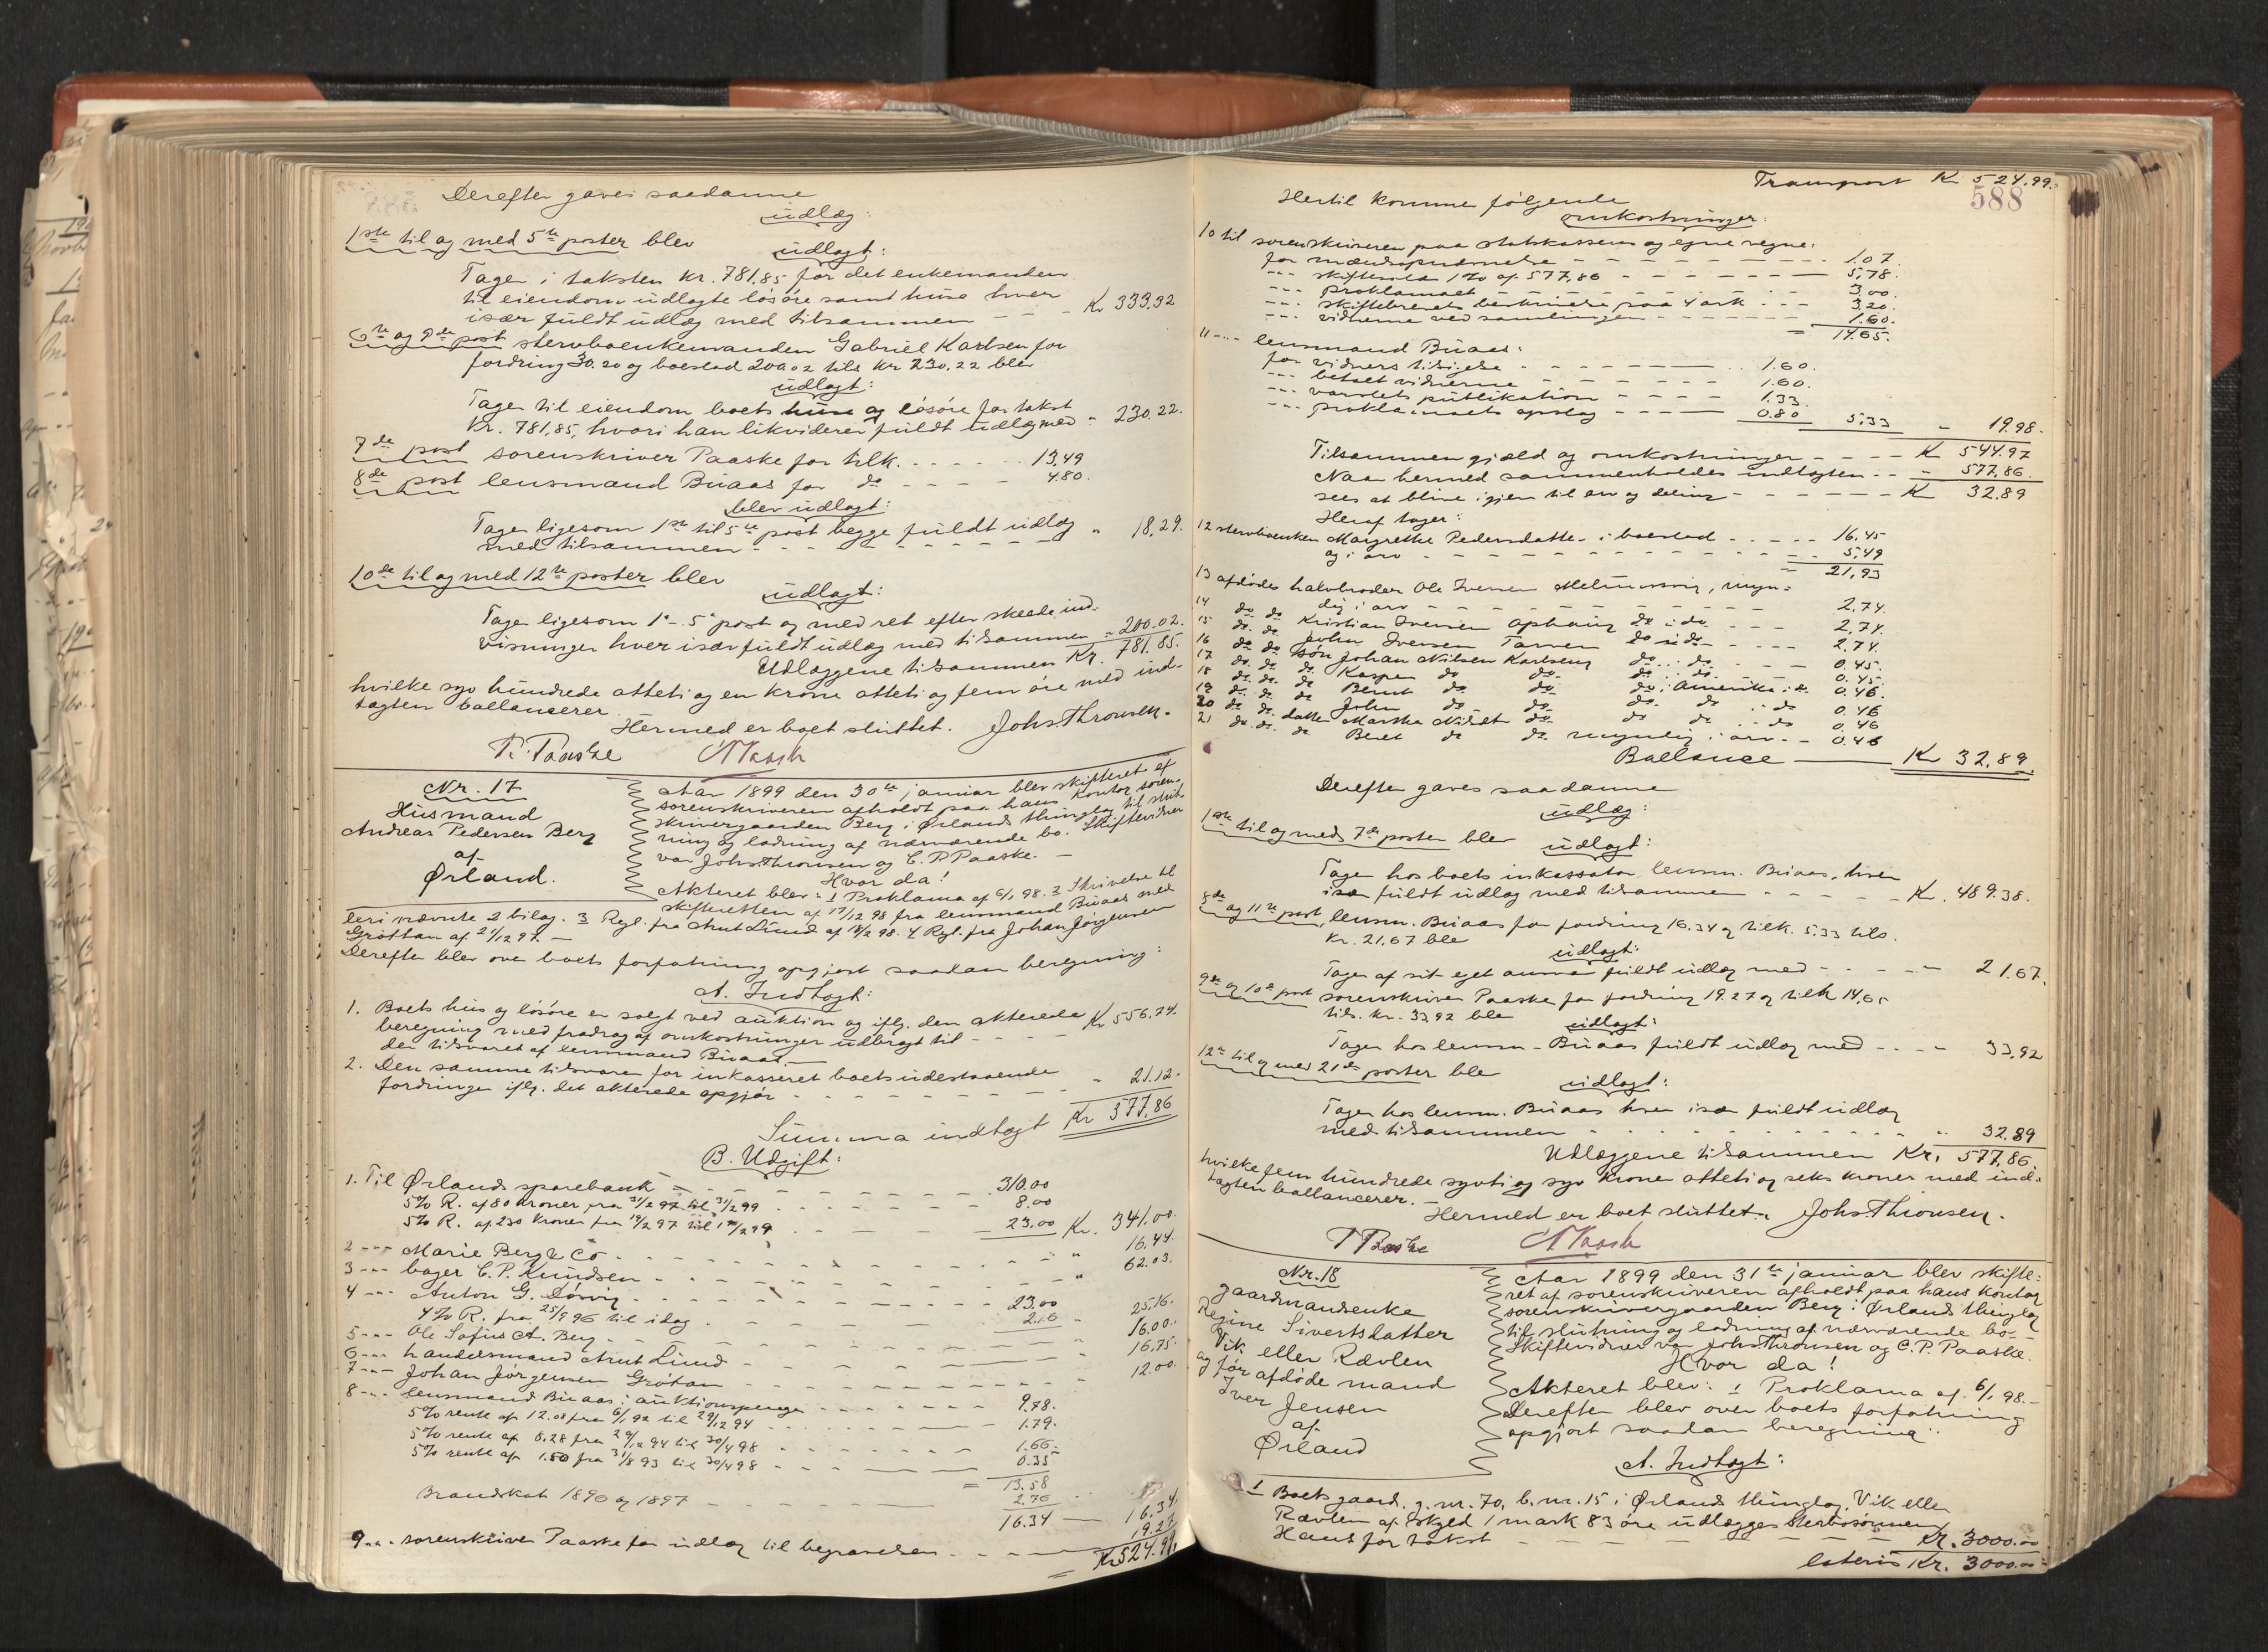 Derefter gaves saadanne
udlæg:
1ste til og med 5te poster blev
udlagt:
Tager i taksten Kr. 781,85 for det enkemanden
til eiendom udlagte løsøre samt huse hver
især fuldt udlæg med tilsammen - - - Kr 333.32
6te og 9de post stervboenkemanden Gabriel Karlsen for
fordring 30.20 og boeslod 200.02 tils Kr 230.22 blev
udlagt:
Tager til eiendom boets huse og løsøre for takst
Kr. 781,85, hvori han likviderer fuldt udlæg med " 230.22.
7de post sorenskriver Paaske for tilk. - - - - - 13,49
8de post lensmand Buaas for do - - - - - 4.80.
blev udlagt:
Tager ligesom 1ste til 5te post begge fuldt udlæg
med tilsammen - - - - - - - - " 18,29.
10de til og med 12te poster blev
udlagt:
Tager ligesom 1e - 5e post og med ret efter skeede ind-
visninger hver især fuldt udlæg med tilsammen " 200.02.
Udlæggene tilsammen Kr. 781.85.
hvilke syv hundrede otteti og en krone otteti og fem øre med ind-
tægten ballancerer.
Hermed er boet sluttet. Johs. Thronsen.
P. Paaske
Nr. 17
Husmand
Andreas Pedersen Berg
af
Ørland.
Aar 1899 den 30te januar blev skifteret af
sorenskriveren afholdt paa hans kontor soren-
skrivergaarden Berg i Ørlands thinglag til slut-
ning og ladning af nærværende bo. Skiftevidner
var Johs. Thronsen og C. P. Paaske. -
Hvor da!
Akteret blev: 1 Proklama af 6/1 98. 2 Skrivelse til
skifteretten af 17/12 98 fra lensmand Buaas med
deri nævnte 2 bilag. 3 Regl. fra Arnt Lund af 18/2 98. 4 Rgl. fra Johan Jørgensen
Grøttan af 21/12 97. -
Derefter blev over boets forfatning opgjort saadan beregning:
A. Indtægt:
1. Boets hus og løsøre er solgt ved auktion og iflg. den akterede
beregning med fradrag af omkostninger udbragt til - - - Kr 556.74.
der tilsvaret af lensmand Buaas
2. Den samme tilsvarer for inkasseret boets udestaaende
fordringer iflg. det akterede opgjør - - - - - " 21.12.
Summa indtægt Kr 577,86
B. Udgift:
1. Til Ørlands sparebank - - - - 310.00
5% R. af 80 kroner fra 31/2 97 til 31/2 99 - - - 8.00
5% R. af 230 kroner fra 19/2 97 til 19/2 99 - - 23.00 Kr. 341.00.
2 --- Marie Berg & Co - - - - - " 16.44.
3 --- bager C. P. Knudsen - - - - - " 62.03.
4 --- Anton G. Døsvig - - - - 23.00
4% R. fra 25/9 96 til idag - - - 2.16 " 25,16.
5 --- Ole Sofus A. Berg - - - - - " 16.00.
6 --- handelsmand Arnt Lund - - - - 16,75.
7 --- Johan Jørgensen Grøtan - - - - " 12.00.
8 --- lensmand Buaas: auktionspenge - - - 9.78.
5% rente af 12.08 fra 6/1 92 til 29/12 94 - - - 1.79.
5% rente af 8.28 fra 29/12 94 til 30/4 98 - - - 1.66
5% rente af 1.50 fra 31/8 93 til 30/4 98 - - - 0.35
= 13.58
Brandskat 1896 og 1897 - - - - 2.76
16.34 — 16.34,
9 --- sorenskriver Paaske for udlæg til begravelsen - - - 19.27
Kr 524.99.
Transport Kr 524.99.
588
Hertil komme følgende
omkostninger:
10 til sorenskriveren paa statskassens og egne vegne:
for mændsopnævnelse - - - - 1.07.
--- skiftesold 1% af 577,86 - - - - 5,78.
--- proklamaet - - - - 3.00.
--- skiftebrevets beskrivelse paa 4 ark - - - 3.20.
--- vidnerne ved samlingen - - - - 1.60.
= 14.65.
11 --- lensmand Buaas:
for vidners tilsigelse - - - - 1.60.
--- betalt vidnerne - - - - 1.60.
--- varslets publikation - - - - 1.33.
--- proklamaets opslag - - - - 0.80 5,33 " 19.98.
Tilsammen gjæld og omkostninger - - - - Kr 544.97
Naar hermed sammenholdes indtægten - - " 577,86.
sees at blive igjen til arv og deling - - - - Kr 32.89
Heraf tager:
12 stervboenken Margrethe Pedersdatter i boeslod - - - - 16,45
og i arv - - - - 5.49
= 21,93
13 afdødes halvbroder Ole Iversen , myn-
dig i arv - - - - 2,74.
14 do do Kristian Iversen Ophaug do i do - - - 2,74.
15 do. do. John Iversen Tarven do i do - - - 2,74.
16 do do søn Johan Nilsen Karlseng do. .. do - - 0.45.
17 do. do. do Kasper do do do. .. do. - - - 0.45.
18 do. do. do Bernt do do do i Amerika i do 0.46.
19 do. do. do John do do do do .. do 0.46
20 do do. datter Martha Nilsdt do do do .. do 0.46
21 do. do. do Beret do do myndig i arv. - 0.46
Ballance — Kr 32.89
Derefter gaves saadanne
udlæg:
1ste til og med 7de poster blev
udlagt:
Tager hos boets inkassator lensm. Buaas, hver
især fuldt udlæg med tilsammen - - - - Kr. 489.38.
8de og 11te post, lensm. Buaas for fordring 16.34 og tilk. 5.33 tils.
Kr. 21,67 blev
udlagt:
Tager af sit eget ansvar fuldt udlæg med - - - - " 21.67.
9de og 10de post sorenskriver Paaske for fordring 19.27 og tilk 14,65
tils. Kr. 33,92 blev
udlagt:
Tager hos lensm. Buaas fuldt udlæg med - - - " 33,92
12te til og med 21de poster blev
udlagt:
Tager hos lensm. Buaas hver især fuldt udlæg
med tilsammen - - - - " 32.89
Udlæggene tilsammen Kr. 577,86.
hvilke fem hundrede sytti og syv kroner otteti og seks kroner med ind-
tægten ballancerer. -
Hermed er boet sluttet. Johs. Thronsen.
P Paaske
Nr. 18
gaardmandsenke
Regine Sivertsdatter
Vik eller Rævlen
og før afdøde mand
Iver Jensen
af
Ørland
Aar 1899 den 31te januar blev skifte-
ret af sorenskriveren afholdt paa hans kontor
sorenskrivergaarden Berg i Ørlands thinglag
til slutning og ladning af nærværende bo. -
Skiftevidner var Johs. Thronsen og C. P. Paaske.
Hvor da!
Akteret blev: 1 Proklama af 6/1 98. -
Derefter blev over boets forfatning
opgjort saadan beregning:
A. Indtægt:
1 Boets gaard, g. nr. 70, b. nr. 15 i Ørlands thinglag, Vik eller
Rævlen af skyld 1 mark 83 øre udlægges sterbosønnen
Hans for takst - - - - Kr. 3000.00
lateris Kr. 3000.00